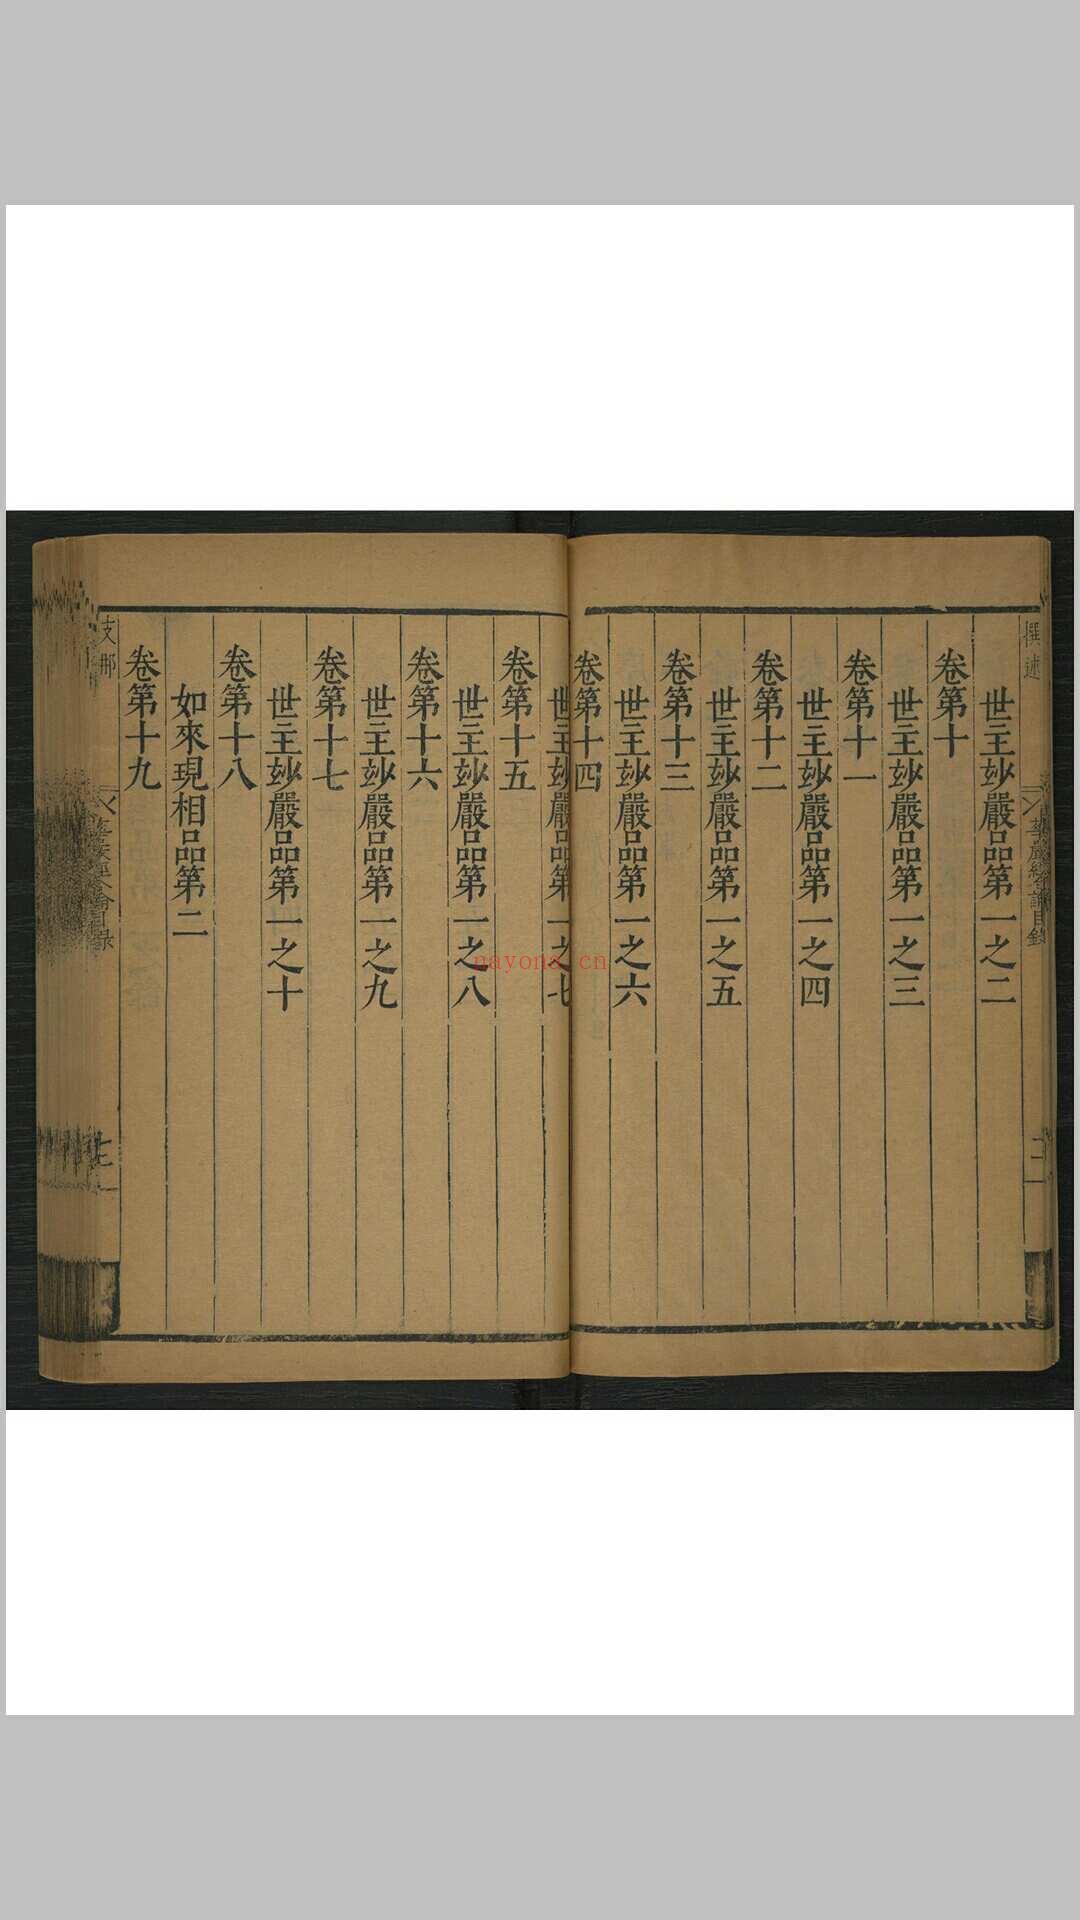 撰述
華嚴經合論目錄
二
世主妙嚴品第一之二
卷第十
世主妙嚴品第一之三
卷第十一
世主妙嚴品第一之四
卷第十二
世主妙嚴品第一之五
卷第十三
世主妙嚴品第一之六
卷第十四
世主妙嚴品第一之七
卷第十五
世主妙嚴品第一之八
卷第十六
世主妙嚴品第一之九
卷第十七
世主妙嚴品第一之十
卷第十八
如來現相品第二
卷第十九
支那
nayona.cn